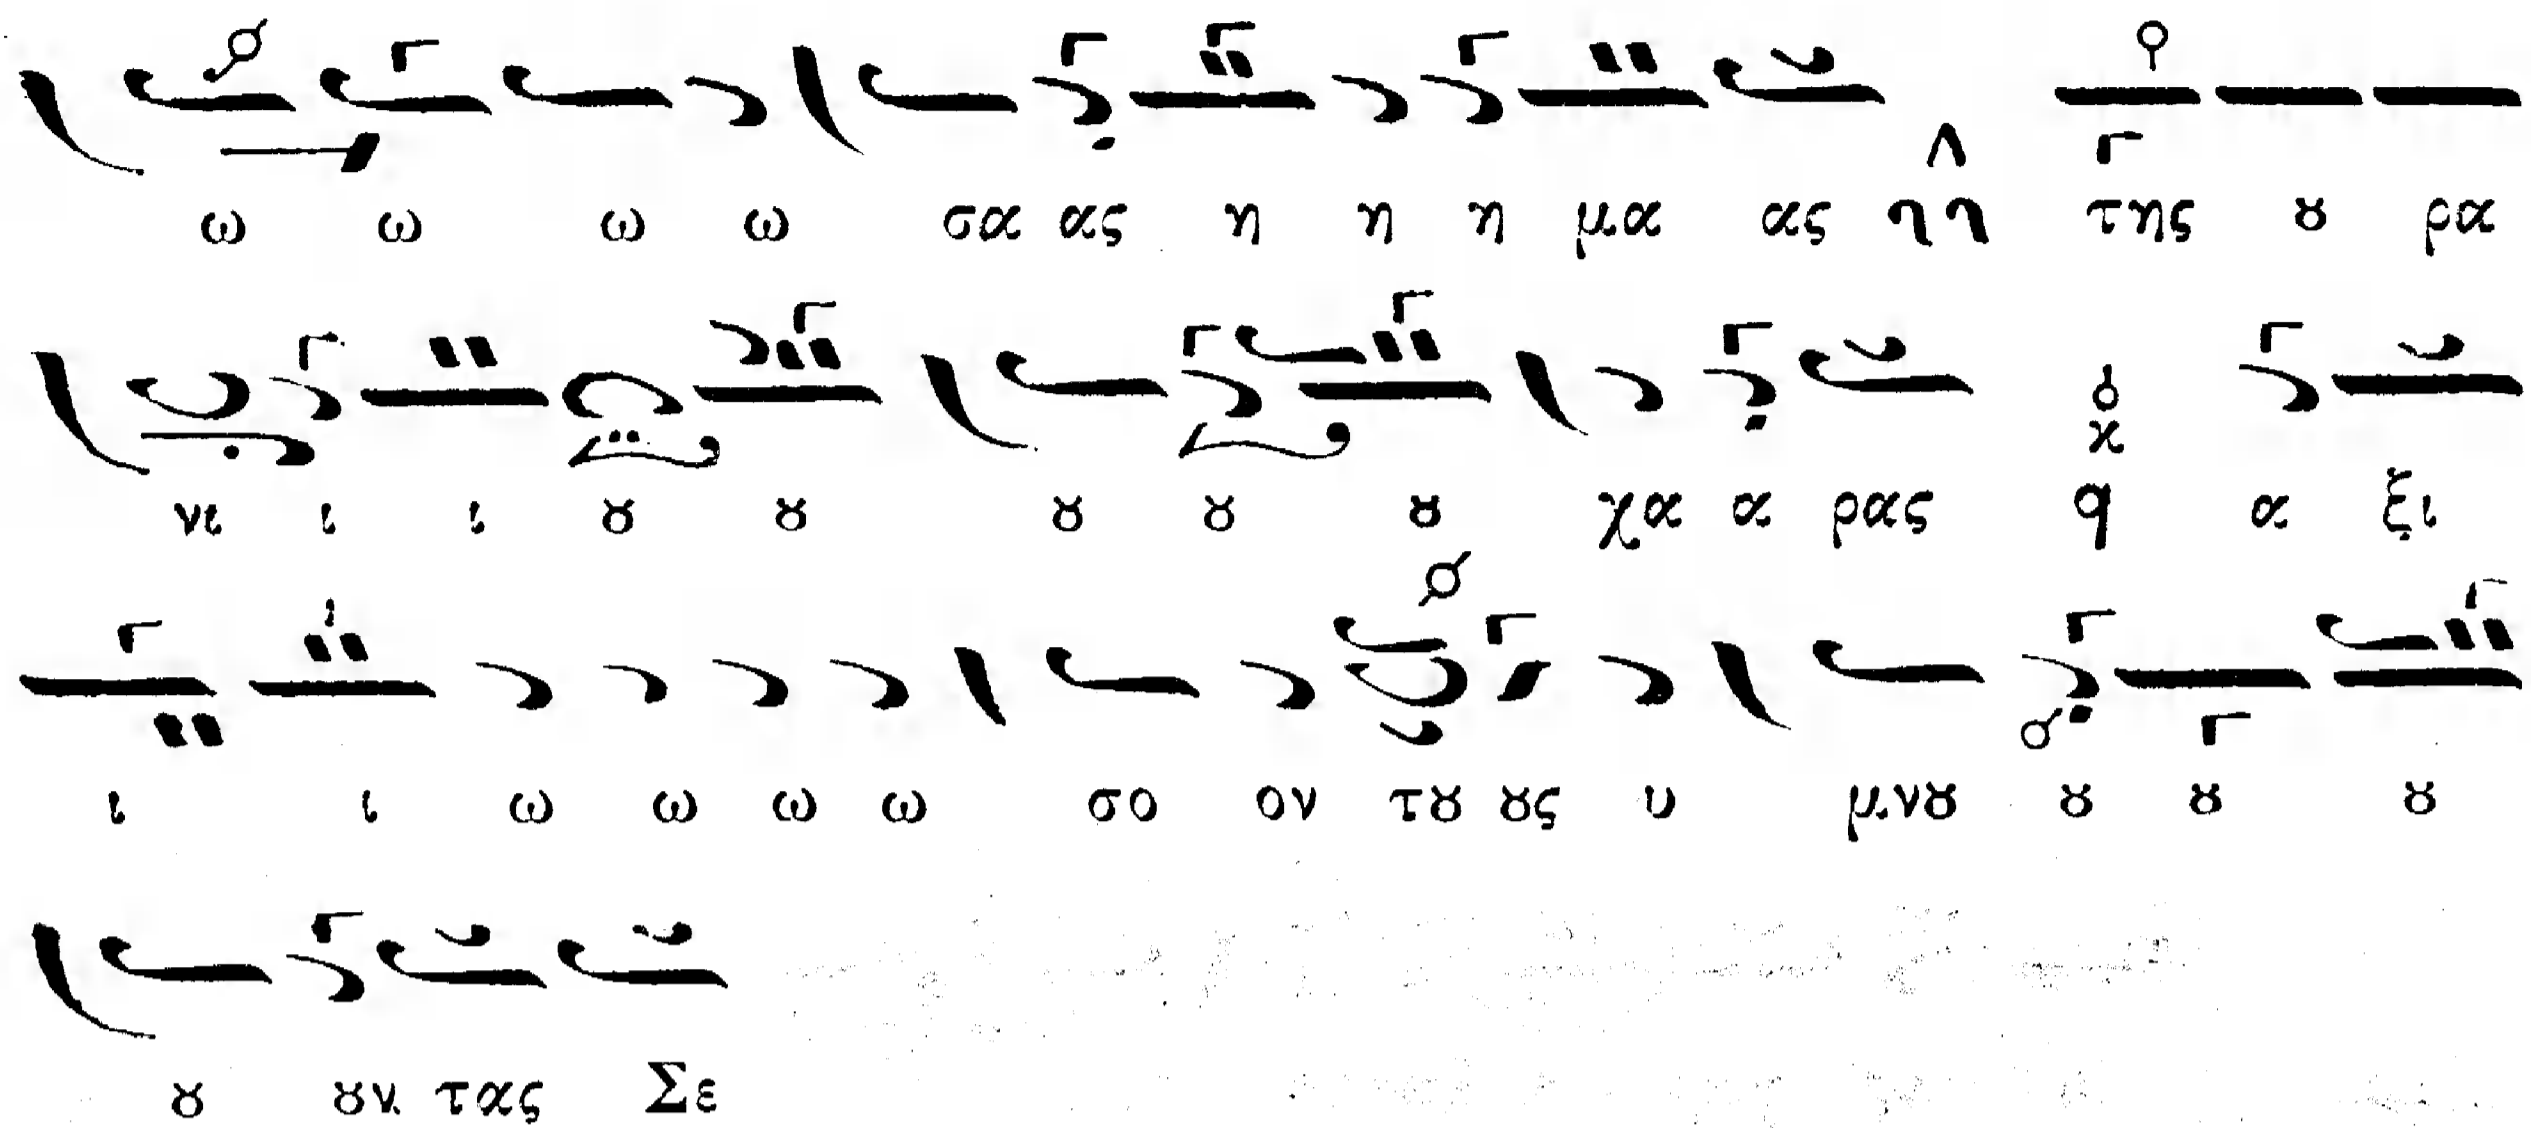 ω ω ω ω σα ας η η η μα ας ϟϟ της ȣ ρα
νι ι ι ȣ ȣ ȣ ȣ ȣ χα α ρας ϙ α ξι
ι ι ω ω ω ω σο ον τȣ ȣς υ μνȣ ȣ ȣ ȣ
ȣ ȣν τας Σε